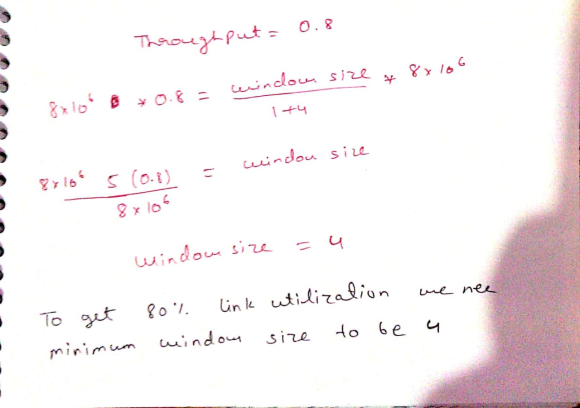 Throughput = 0.8
8×10⁶ * 0.8 = window size / 1+4 * 8×10⁶
8×10⁶ 5 (0.8) / 8×10⁶ = window size
window size = 4
To get 80% link utilization we nee
minimum window size to be 4